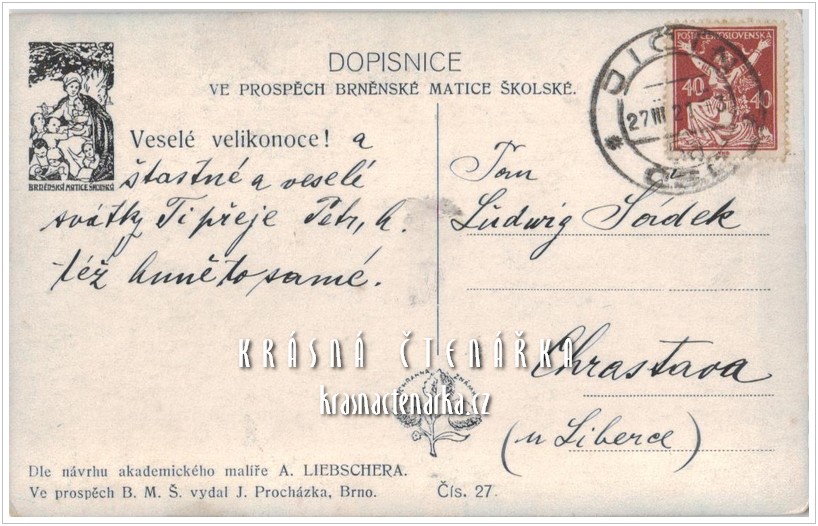 DOPISNICE
VE PROSPĚCH BRNĚNSKÉ MATICE ŠKOLSKÉ.
BRNĚNSKÁ MATICE ŠKOLSKÁ
POSTA ČESKOSLOVENSKÁ
40 40
JIČÍN
27 III 21
Veselé velikonoce! a
štastné a veselé
svátky Ti přeje Petr, h.
též Anně to samé.
Pan
Ludwig Sádek
Chrastava
(u Liberce)
KRÁSNÁ ČTENÁŘKA
krasnactenarka.cz
OCHRANNÁ ZNÁMKA
Dle návrhu akademického malíře A. LIEBSCHERA.
Ve prospěch B. M. Š. vydal J. Procházka, Brno.
Čís. 27.